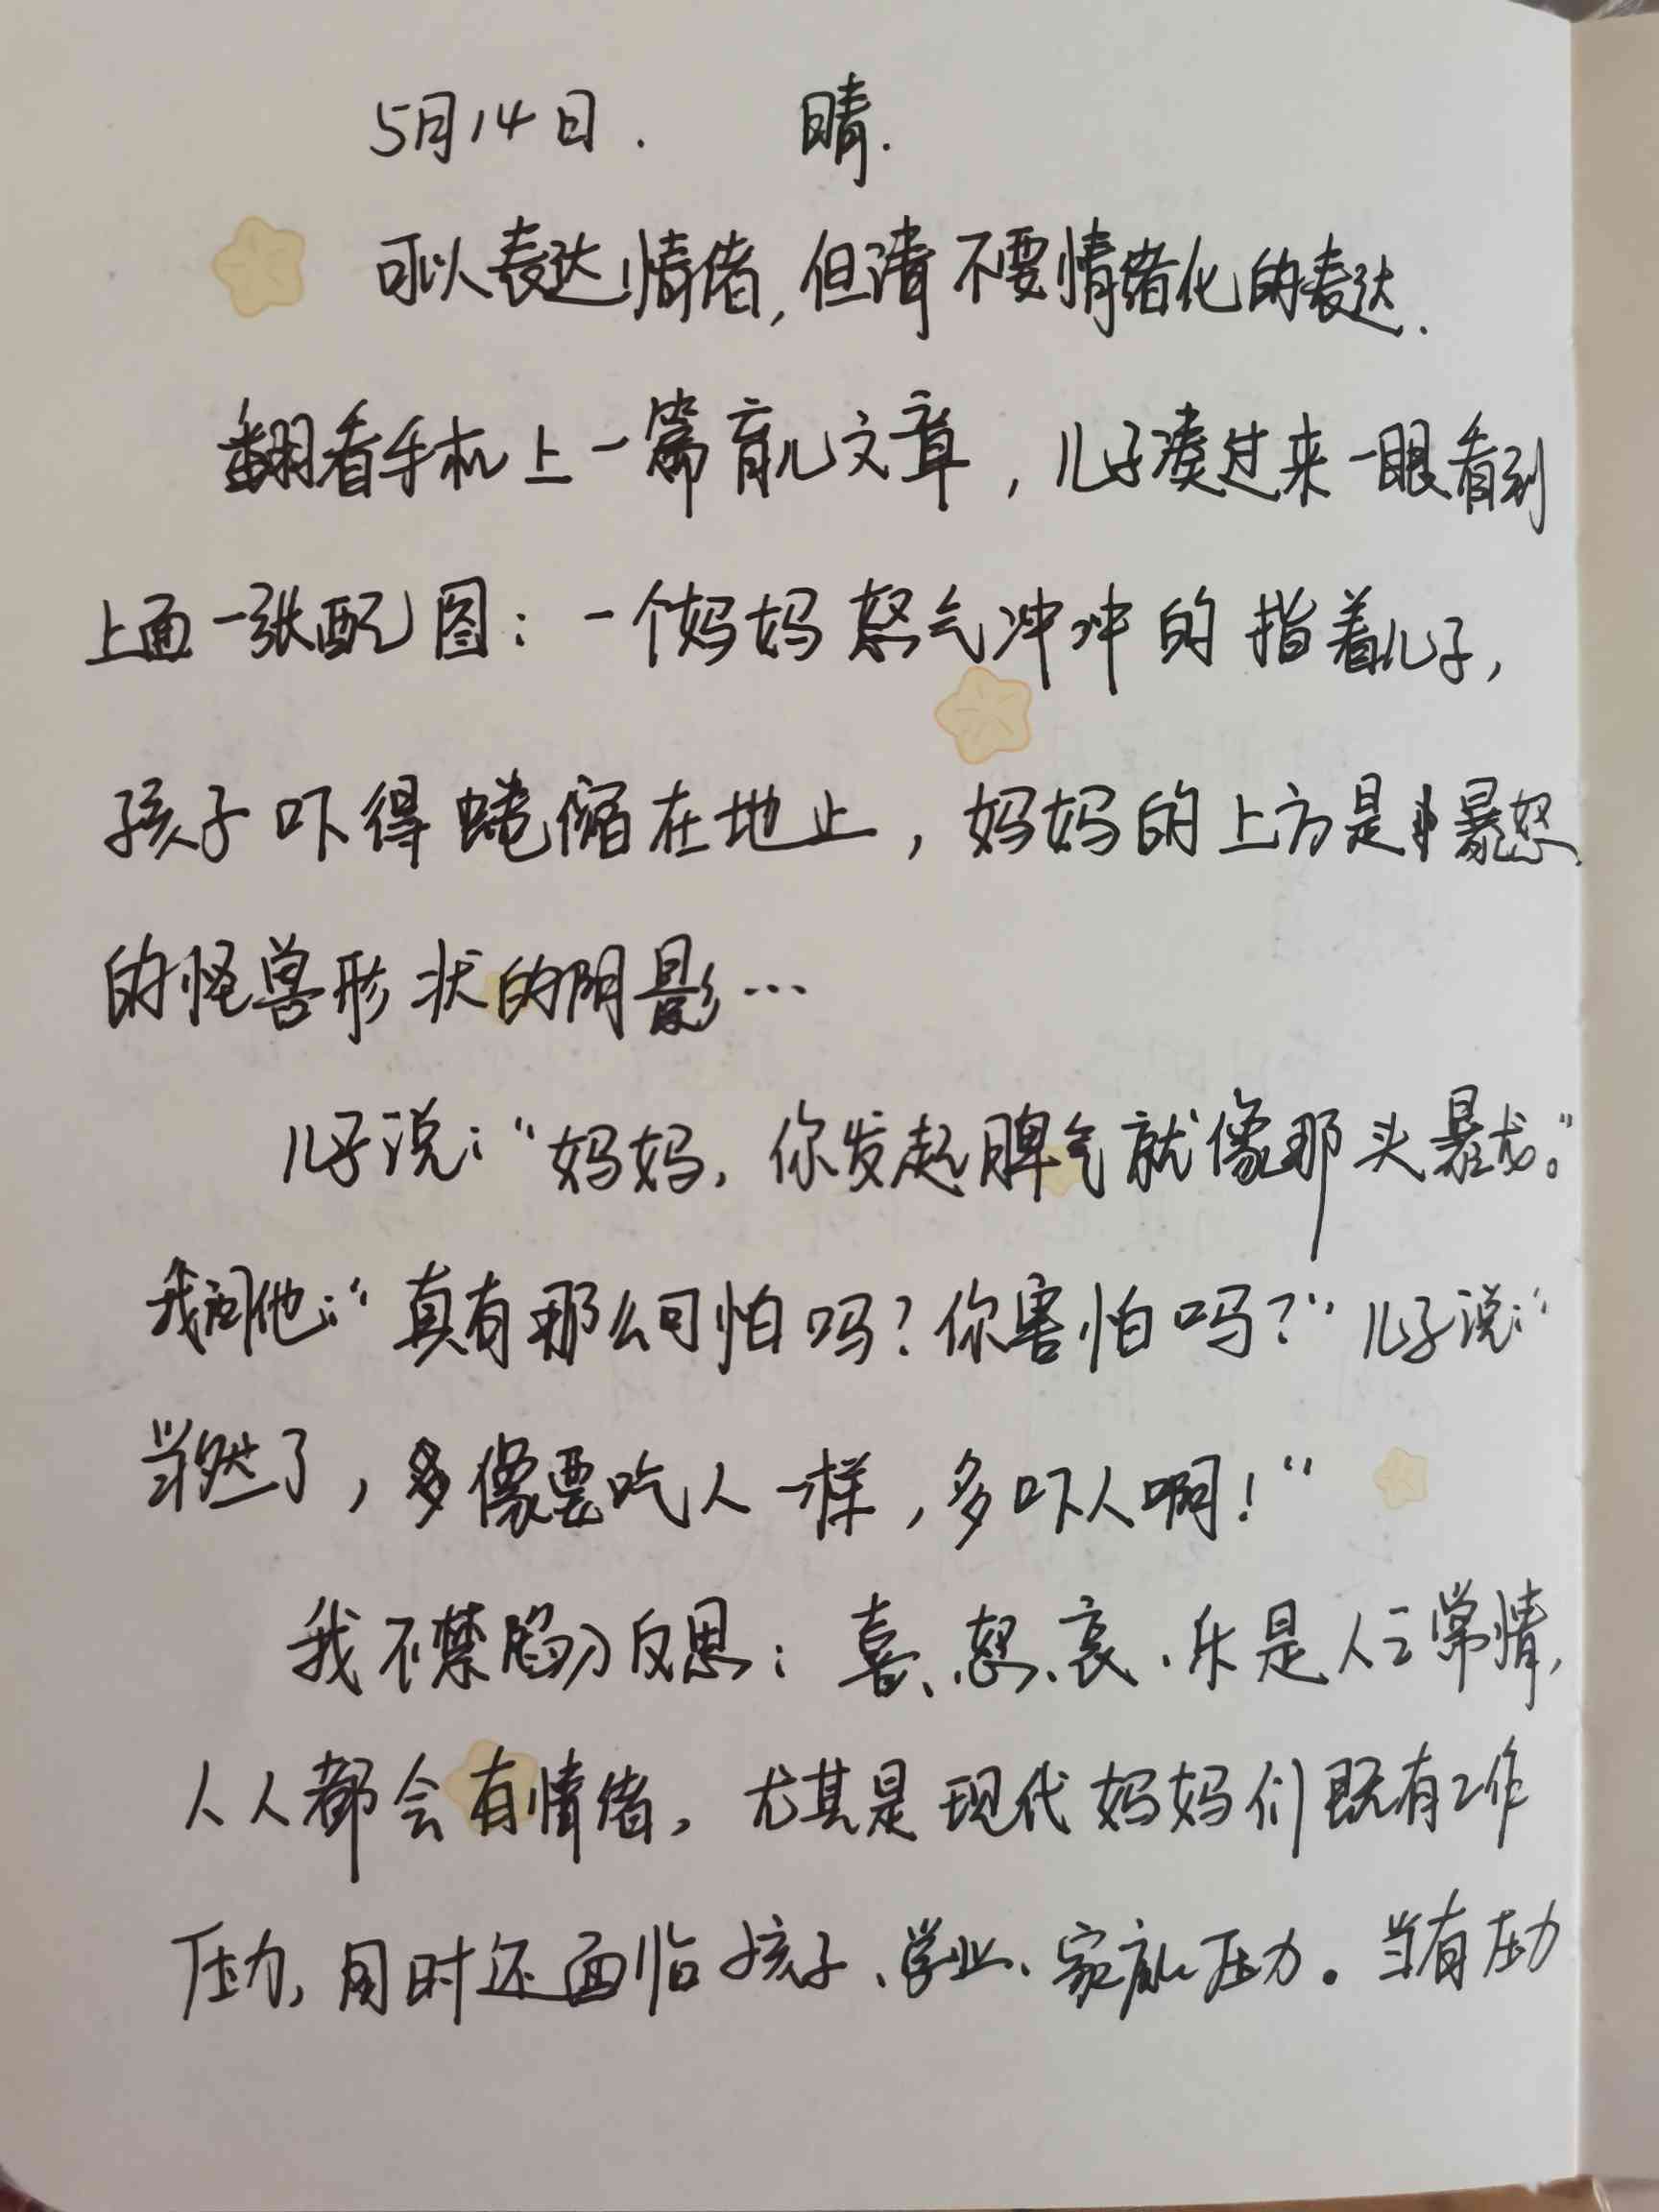 5月14日. 晴.
可以表达情绪,但请不要情绪化的表达.
翻看手机上一篇育儿文章,儿子凑过来一眼看到
上面一张配图:一个妈妈怒气冲冲的指着儿子,
孩子吓得蜷缩在地上,妈妈的上方是暴怒
的怪兽形状的阴影…
儿子说:“妈妈,你发起脾气就像那头暴龙。”
我问他:“真有那么可怕吗?你害怕吗?”儿子说:“
当然了,多像要吃人一样,多吓人啊!“
我不禁陷入反思:喜、怒、哀、乐是人之常情,
人人都会有情绪,尤其是现代妈妈们既有工作
压力,同时还面临孩子、学业、家庭压力。当有压力